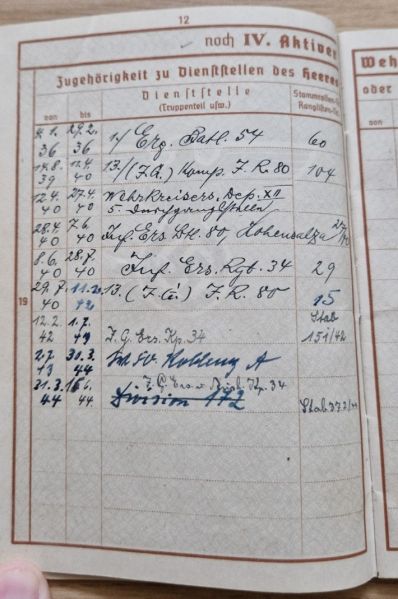 12
noch IV. Aktiver
Zugehörigkeit zu Dienststellen des Heeres
Dienststelle
(Truppenteil usw.)
Stammrollen-
Ranglisten-
von
bis
4.1. 29.2.
36 36
1./ Erg. Batl. 54
60
11.4.
39 40
13/(I.G.) Komp. I.R. 80
104
12.4. 27.4.
40 40
Wehrkreisers. Dep. XII
28.4. 7.6.
40 40
Inf. Ers. Btl. 80, Hohensalza
8.6. 28.7.
40 40
Inf. Ers. Rgt. 34
29
19
29.7. 11.2.
40 42
13. (I.G.) I.R. 80
15
12.2. 1.7.
42 43
I.G. Ers. Kp. 34
Stab
151/42
2.7. 30.3.
43 44
Koblenz A
31.3.
44 44.
Kp. 34
Division 172
Stab 372/44
Weh
oder
von